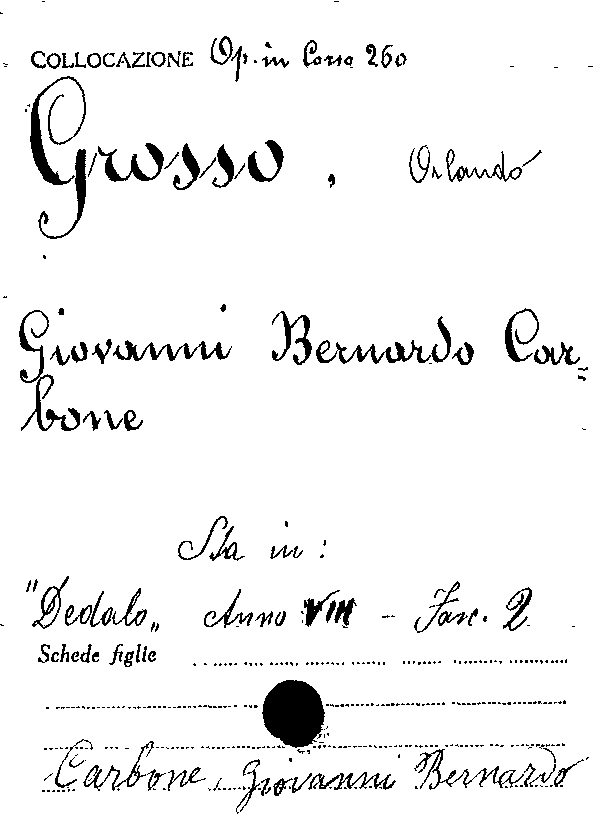 COLLOCAZIONE Op. in Corso 260
Grosso, Orlando
Giovanni Bernardo Car=
bone
Sta in:
"Dedalo„ Anno VIII - Fasc. 2
Schede figlie
Carbone, Giovanni Bernardo